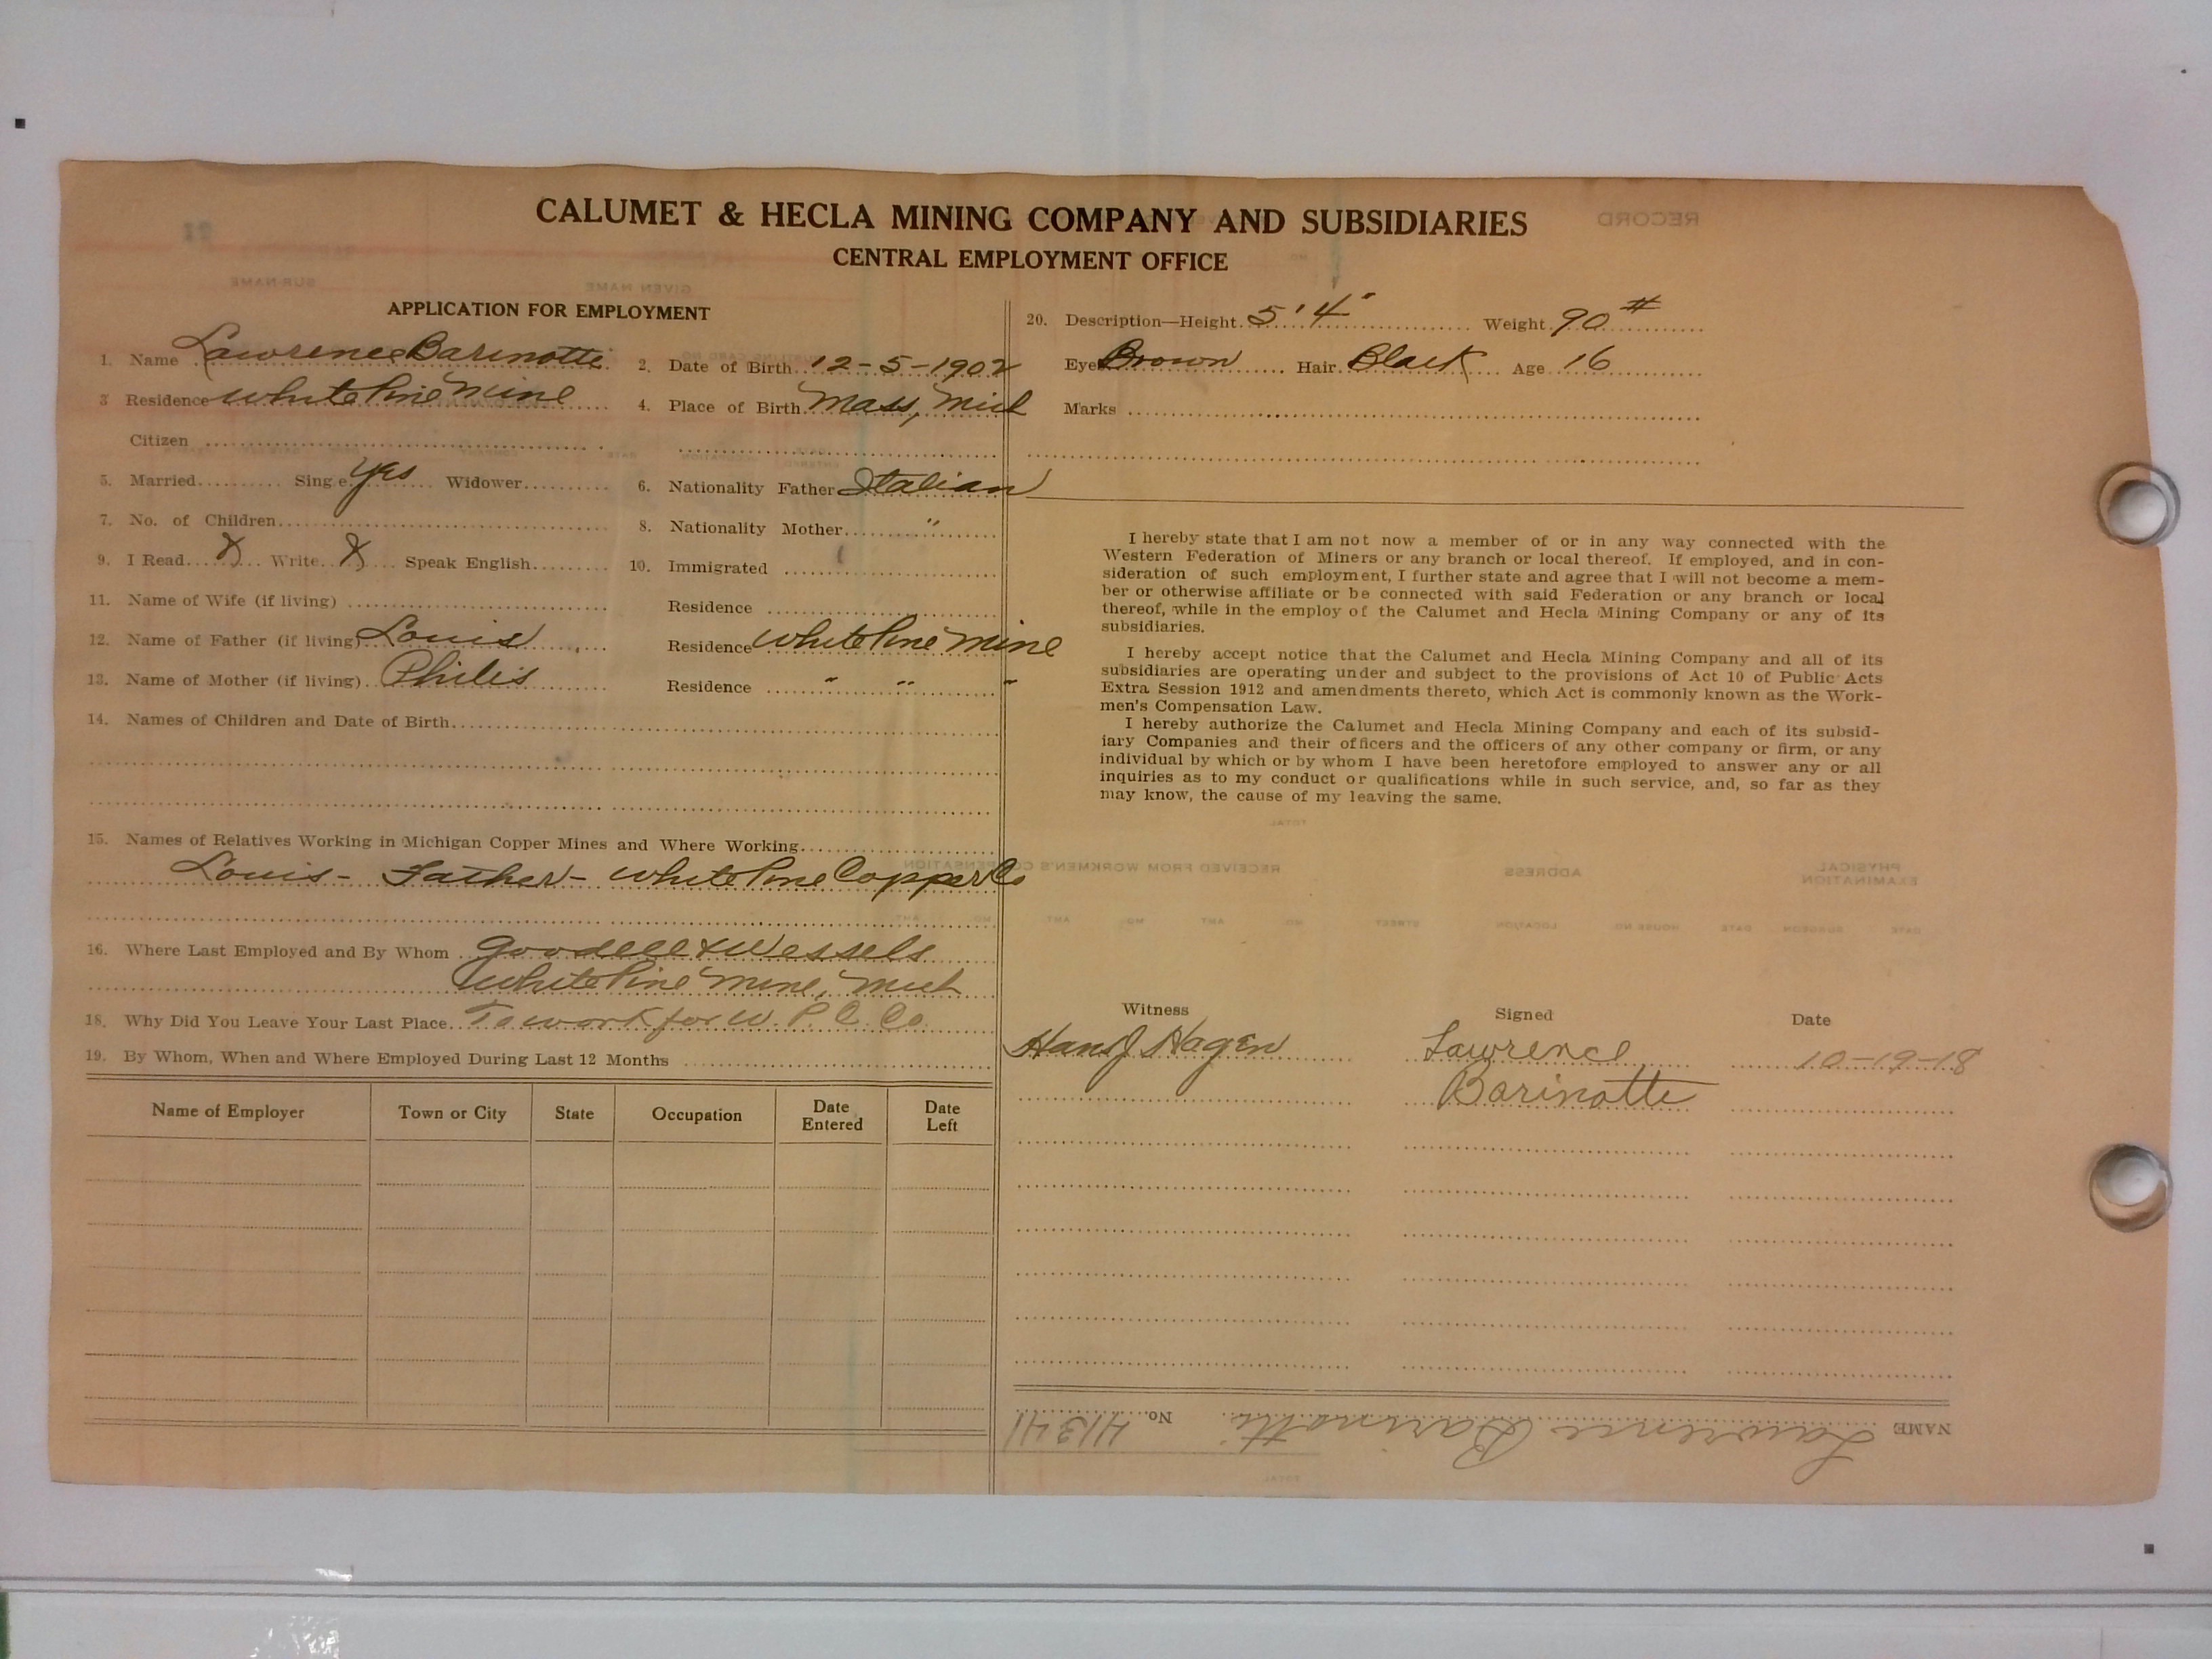 CALUMET & HECLA MINING COMPANY AND SUBSIDIARIES
CENTRAL EMPLOYMENT OFFICE
RECORD
APPLICATION FOR EMPLOYMENT
1. Name Lawrence Barinotti 2. Date of Birth 12-5-1902
3 Residence White Pine Mine 4. Place of Birth Mass, Mich
Citizen
5. Married Single yes Widower 6. Nationality Father Italian
7. No. of Children 8. Nationality Mother "
9. I Read X Write X Speak English 10. Immigrated
11. Name of Wife (if living) Residence
12. Name of Father (if living) Louis Residence White Pine Mine
13. Name of Mother (if living) Philis Residence " " "
14. Names of Children and Date of Birth
15. Names of Relatives Working in Michigan Copper Mines and Where Working
Louis - Father - White Pine Copper Co
16. Where Last Employed and By Whom Goodell & Wessels
White Pine Mine, Mich
18. Why Did You Leave Your Last Place To work for W. P. C. Co.
19. By Whom, When and Where Employed During Last 12 Months
Name of Employer Town or City State Occupation Date Entered Date Left
20. Description—Height 5'4" Weight 90#
Eye Brown Hair Black Age 16
Marks
I hereby state that I am not now a member of or in any way connected with the
Western Federation of Miners or any branch or local thereof. If employed, and in con-
sideration of such employment, I further state and agree that I will not become a mem-
ber or otherwise affiliate or be connected with said Federation or any branch or local
thereof, while in the employ of the Calumet and Hecla Mining Company or any of its
subsidiaries.
I hereby accept notice that the Calumet and Hecla Mining Company and all of its
subsidiaries are operating under and subject to the provisions of Act 10 of Public Acts
Extra Session 1912 and amendments thereto, which Act is commonly known as the Work-
men's Compensation Law.
I hereby authorize the Calumet and Hecla Mining Company and each of its subsid-
iary Companies and their officers and the officers of any other company or firm, or any
individual by which or by whom I have been heretofore employed to answer any or all
inquiries as to my conduct or qualifications while in such service, and, so far as they
may know, the cause of my leaving the same.
Witness Signed Date
Hans J Hagen Lawrence 10-19-18
Barinotte
NAME Lawrence Barinotti No. 41341